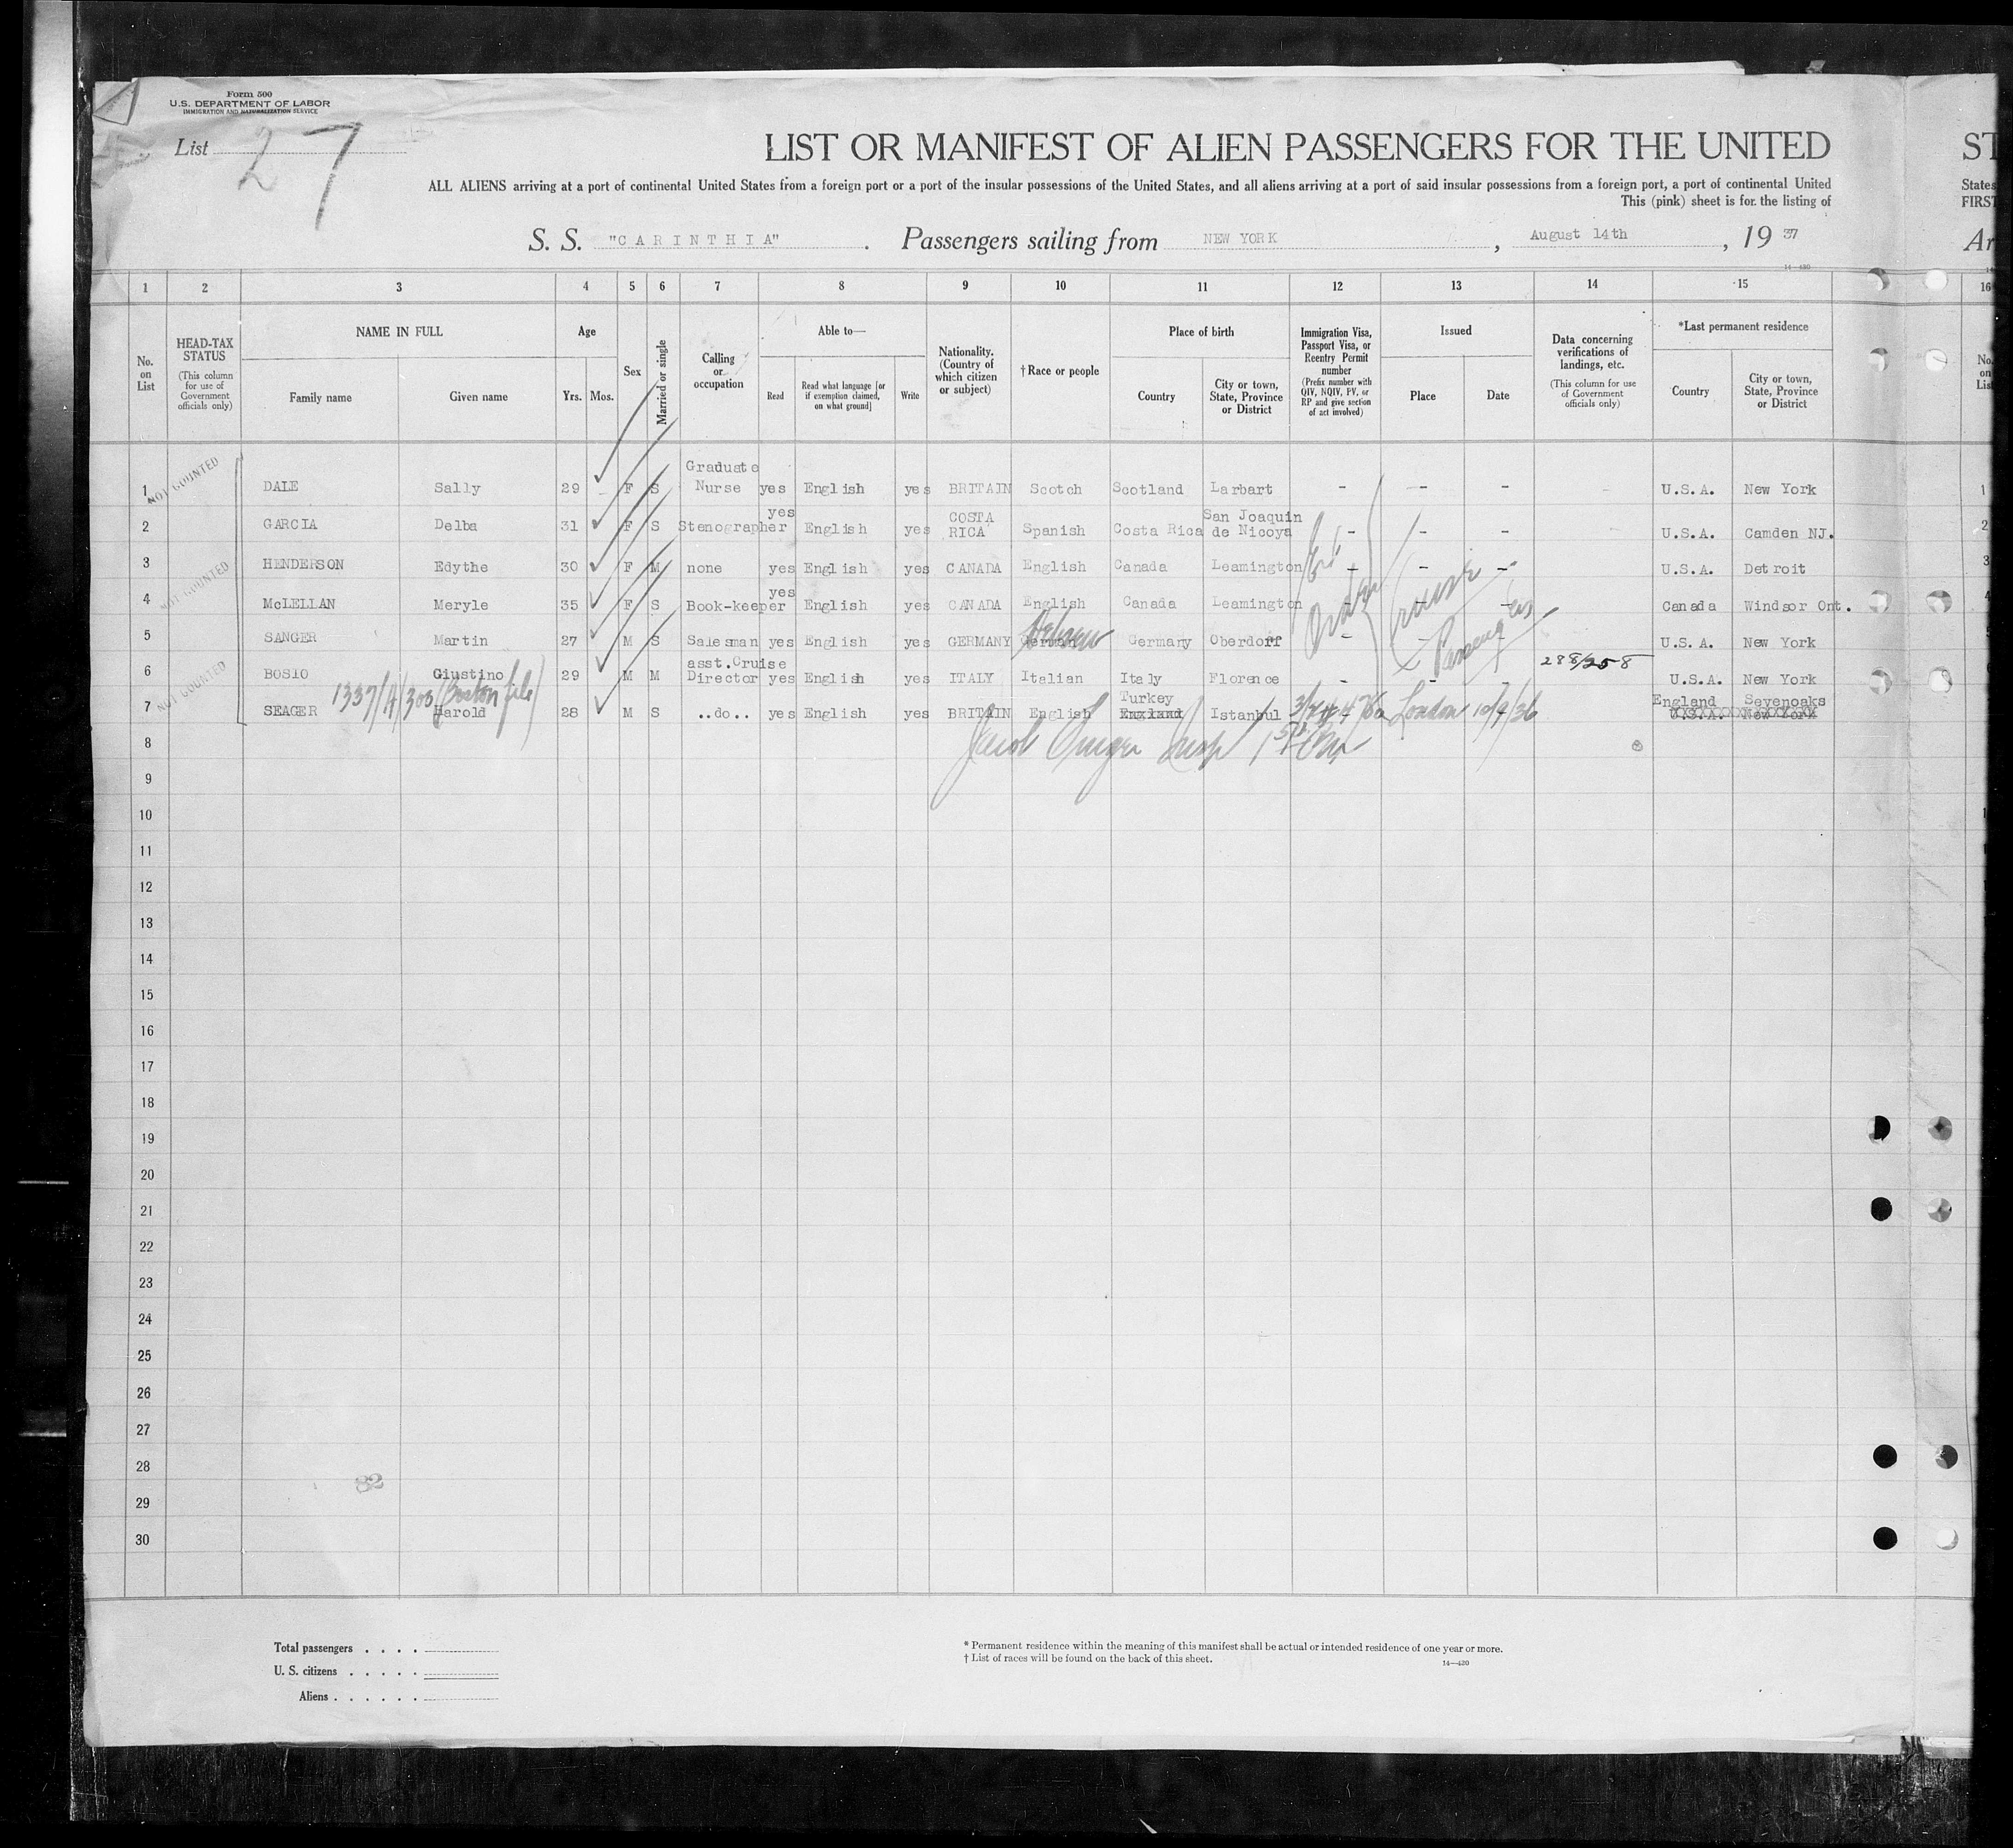 Form 500
U.S. DEPARTMENT OF LABOR
IMMIGRATION AND NATURALIZATION SERVICE
List 27
LIST OR MANIFEST OF ALIEN PASSENGERS FOR THE UNITED
ST
ALL ALIENS arriving at a port of continental United States from a foreign port or a port of the insular possessions of the United States, and all aliens arriving at a port of said insular possessions from a foreign port, a port of continental United
States
This (pink) sheet is for the listing of
FIRST
S. S. "CARINTHIA". Passengers sailing from NEW YORK, August 14th, 1937
Ar
14—420
1 2 3 4 5 6 7 8 9 10 11 12 13 14 15 16
No. on List
HEAD-TAX STATUS (This column for use of Government officials only)
NAME IN FULL
Family name Given name
Age
Yrs. Mos.
Sex
Married or single
Calling or occupation
Able to—
Read
Read what language [or if exemption claimed, on what ground]
Write
Nationality. (Country of which citizen or subject)
†Race or people
Place of birth
Country
City or town, State, Province or District
Immigration Visa, Passport Visa, or Reentry Permit number (Prefix number with QIV, NQIV, PV, or RP and give section of act involved)
Issued
Place Date
Data concerning verifications of landings, etc. (This column for use of Government officials only)
*Last permanent residence
Country
City or town, State, Province or District
No. on List
NOT COUNTED
1 DALE Sally 29 F S Graduate Nurse yes English yes BRITAIN Scotch Scotland Larbart - - - U.S.A. New York 1
2 GARCIA Delba 31 F S Stenographer yes English yes COSTA RICA Spanish Costa Rica San Joaquin de Nicoya - - - U.S.A. Camden NJ. 2
3 HENDERSON Edythe 30 F M none yes English yes CANADA English Canada Leamington - - - U.S.A. Detroit 3
NOT COUNTED
4 McLELLAN Meryle 35 F S Book-keeper yes English yes CANADA English Canada Leamington - - Canada Windsor Ont. 4
5 SANGER Martin 27 M S Salesman yes English yes GERMANY German Hebrew Germany Oberdorf - - - U.S.A. New York
Cruise Passengers
NOT COUNTED
6 BOSIO Giustino 29 M M asst. Cruise Director yes English yes ITALY Italian Italy Florence - - - 288/258 U.S.A. New York
1337/A/303 (Boston file)
7 SEAGER Harold 28 M S ..do.. yes English yes BRITAIN English Turkey England Istanbul London 10/9/36 England Sevenoaks U.S.A. New York
8
9
10
11
12
13
14
15
16
17
18
19
20
21
22
23
24
25
26
27
28
82
29
30
Total passengers . . . .
U. S. citizens . . . . .
Aliens . . . . . .
* Permanent residence within the meaning of this manifest shall be actual or intended residence of one year or more.
† List of races will be found on the back of this sheet.
14—420